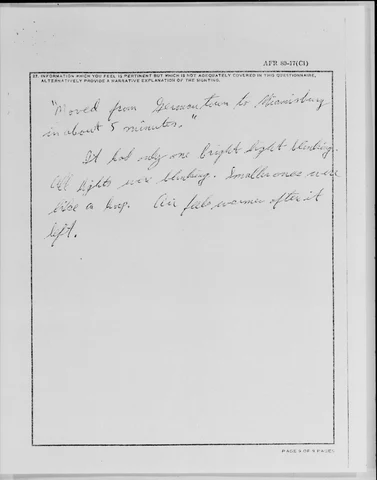 AFR 80-17(C1)
37. INFORMATION WHICH YOU FEEL IS PERTINENT BUT WHICH IS NOT ADEQUATELY COVERED IN THIS QUESTIONNAIRE.
ALTERNATIVELY PROVIDE A NARRATIVE EXPLANATION OF THE SIGHTING.
"Moved from Germantown to Miamisburg
in about 5 minutes."
It had only one bright light blinking.
All lights were blinking. Smaller ones were
like a ring. Air feels warmer after it
left.